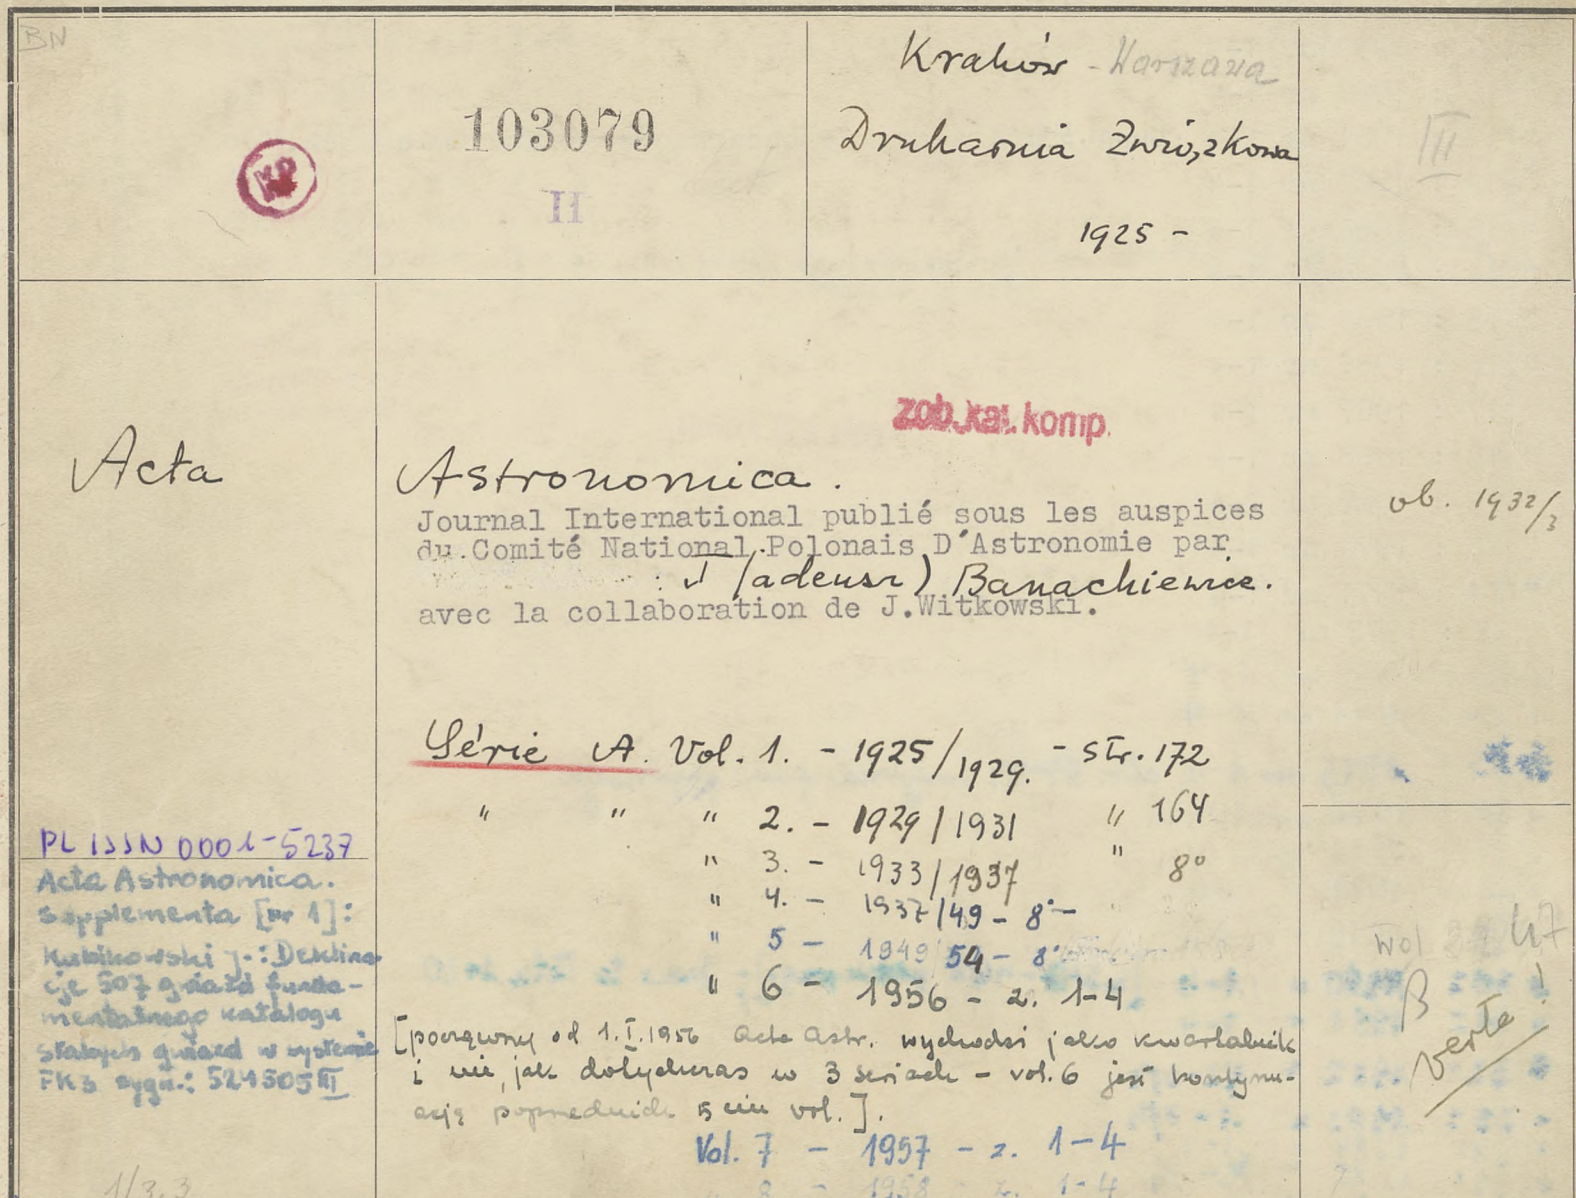 BN
Kraków - Warszawa
103079
Drukarnia Związkowa
III
II
1925 -
zob. kat. komp.
Acta Astronomica.
ob. 1932/3
Journal International publié sous les auspices
du Comité National Polonais D'Astronomie par
T(adeusz) Banachiewicz.
avec la collaboration de J.Witkowski.
Série A. Vol. 1. - 1925/1929. - str. 172
" " " 2. - 1929/1931 " 164
" 3. - 1933/1937 " 8°
" 4. - 1937/49 - 8° -
" 5 - 1949/54 - 8°
" 6 - 1956 - z. 1-4
[począwszy od 1.I.1956 Acta Astr. wychodzi jako kwartalnik
i nie, jak dotychczas w 3 seriach - vol. 6 jest kontynu-
acją poprzednich 5 ciu vol.].
Vol. 7 - 1957 - z. 1-4
" 8 - 1958 - z. 1-4
PL ISSN 0001-5237
Acta Astronomica.
Supplementa [nr 1]:
Kubikowski J.: Deklina-
cje 507 gwiazd funda-
mentalnego katalogu
stałych gwiazd w systemie
FK3 sygn.: 521505 III
vol
B
verte!
1/3.3